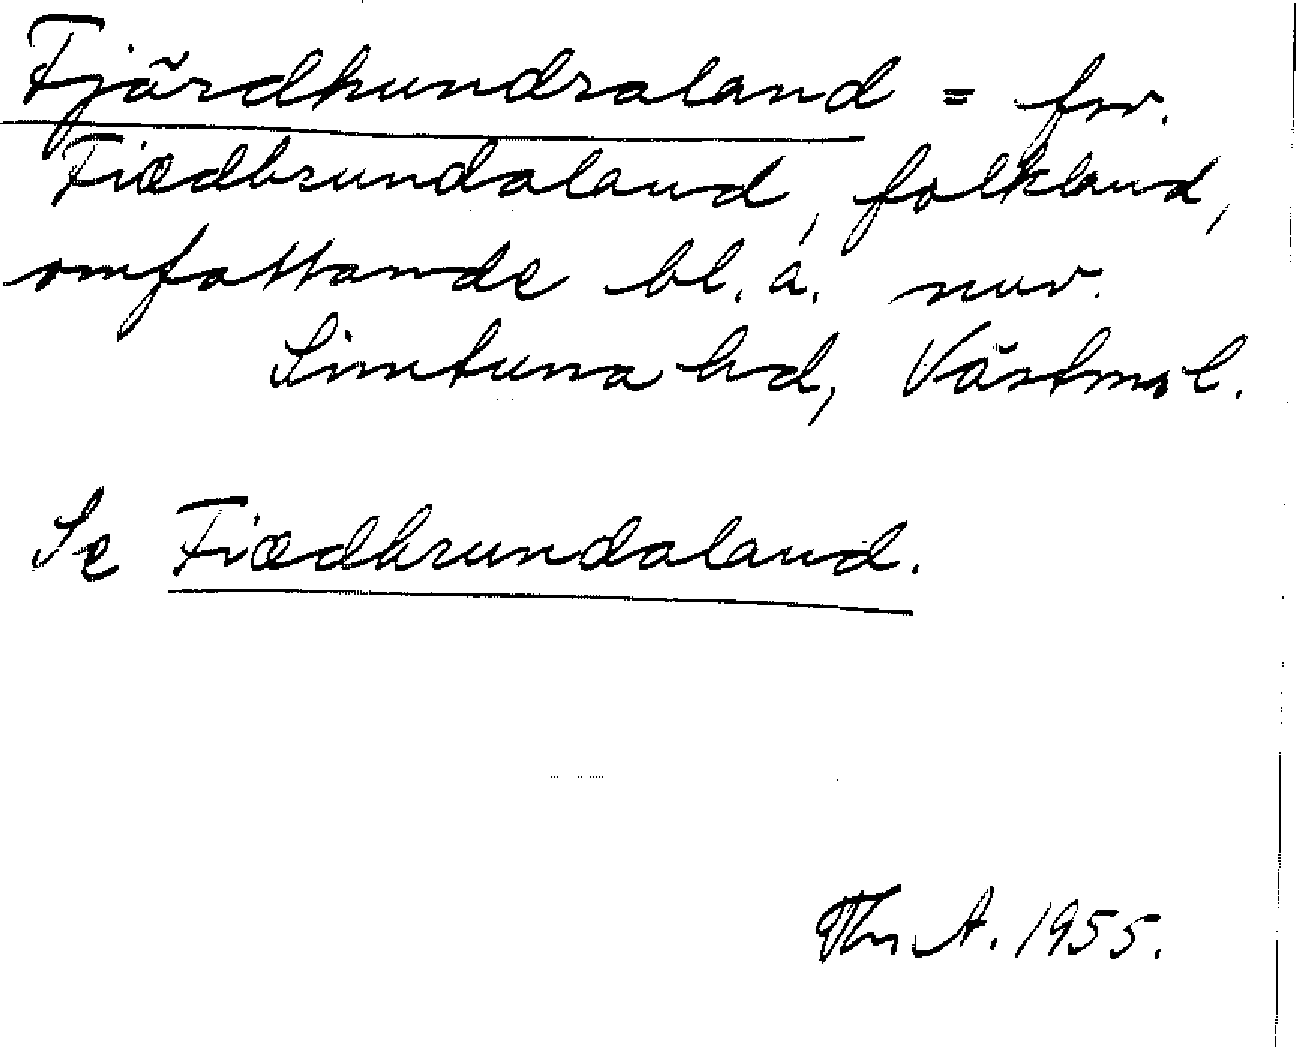 Fjärdhundraland = fvv.
Fiædhrundaland, folkland,
omfattande bl. a. nuv.
Simtuna hd, Västml.
Se Fiædhrundaland.
Thr A. 1955.